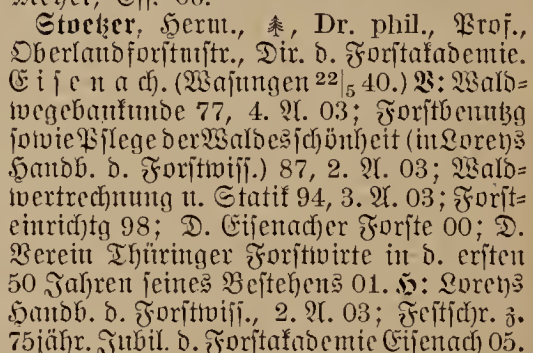 Stoetzer, Herm., Dr. phil., Prof.,
Oberlandforstmstr., Dir. d. Forstakademie.
Eisenach. (Wasungen 22|5 40.) V: Wald=
wegebaukunde 77, 4. A. 03; Forstbenutzg
sowie Pflege der Waldesschönheit (in Loreys
Handb. d. Forstwiss.) 87, 2. A. 03; Wald=
wertrechnung u. Statik 94, 3. A. 03; Forst=
einrichtg 98; D. Eisenacher Forste 00; D.
Verein Thüringer Forstwirte in d. ersten
50 Jahren seines Bestehens 01. H: Loreys
Handb. d. Forstwiss., 2. A. 03; Festschr. z.
75jähr. Jubil. d. Forstakademie Eisenach 05.